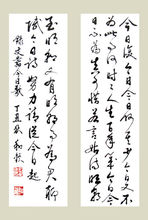 今日復今日今日何其少今日又不
為此事何時了人生百年幾今日今
日不為真可惜若言姑待明朝
至明朝又有明朝事為君聊
賦今日詩努力請從今日起
錄文嘉今日歌 丁丑秋